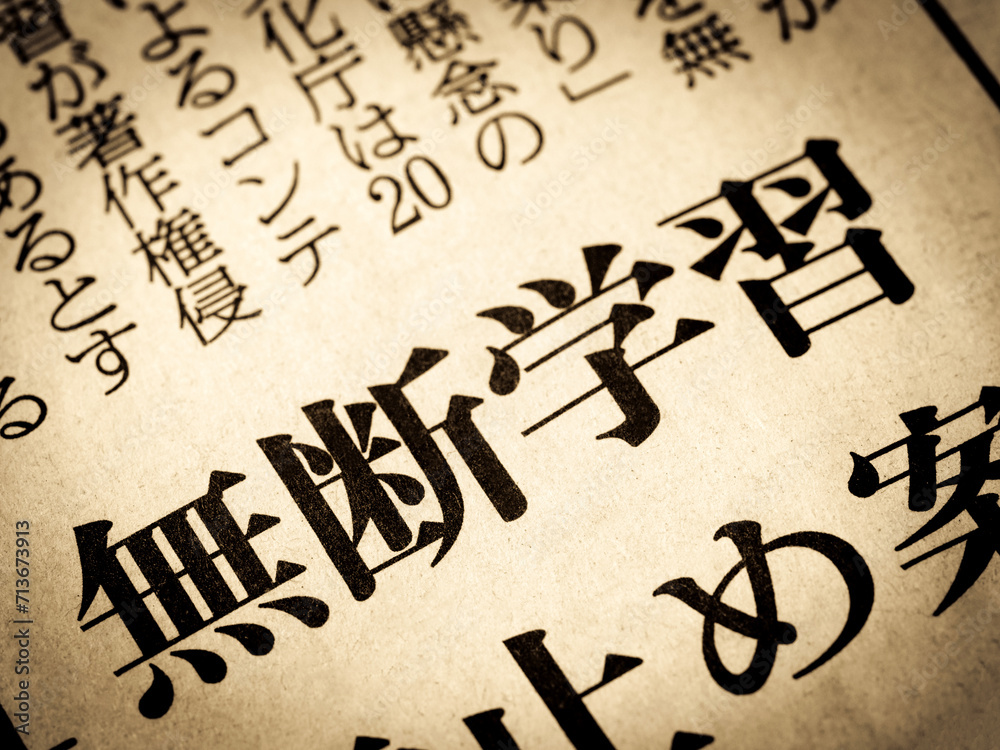 無断学習
止め
を無
乗り」
懸念の
化庁は20
よるコンテ
習が著作権侵
あるとす
る
Adobe Stock | #713673913